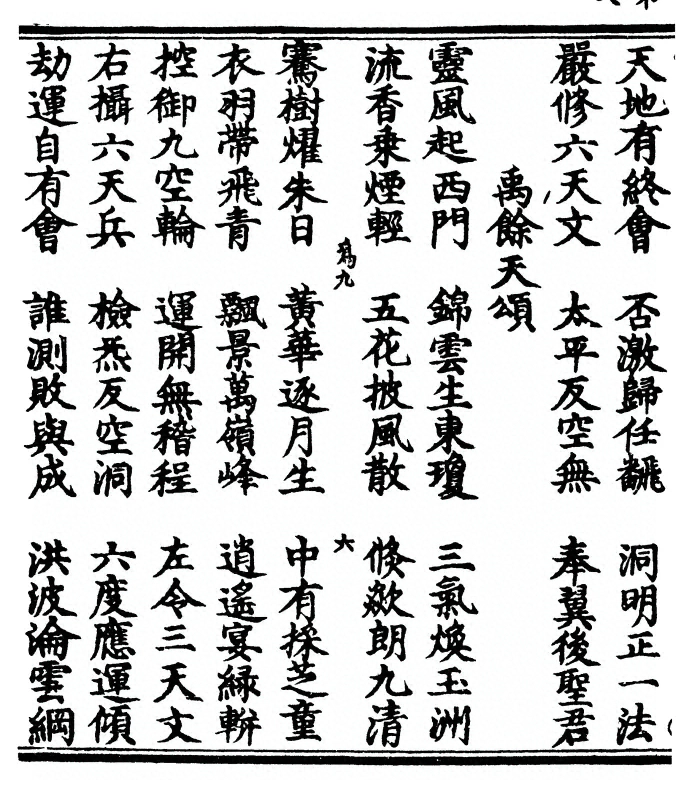 天地有終會　否激歸任飜　洞明正一法
嚴修六天文　太平反空無　奉翼後聖君
禹餘天頌
靈風起西門　錦雲生東瓊　三氣煥玉洲
流香乗煙輕　五花披風散　倐歘朗九清
為九　六
騫樹燿朱日　黃華逐月生　中有採芝童
衣羽帶飛青　飄景萬嶺峰　逍遙宴緑軿
控御九空輪　運開無稽程　左令三天文
右攝六天兵　檢炁反空洞　六度應運傾
劫運自有會　誰測敗與成　洪波淪雲綱